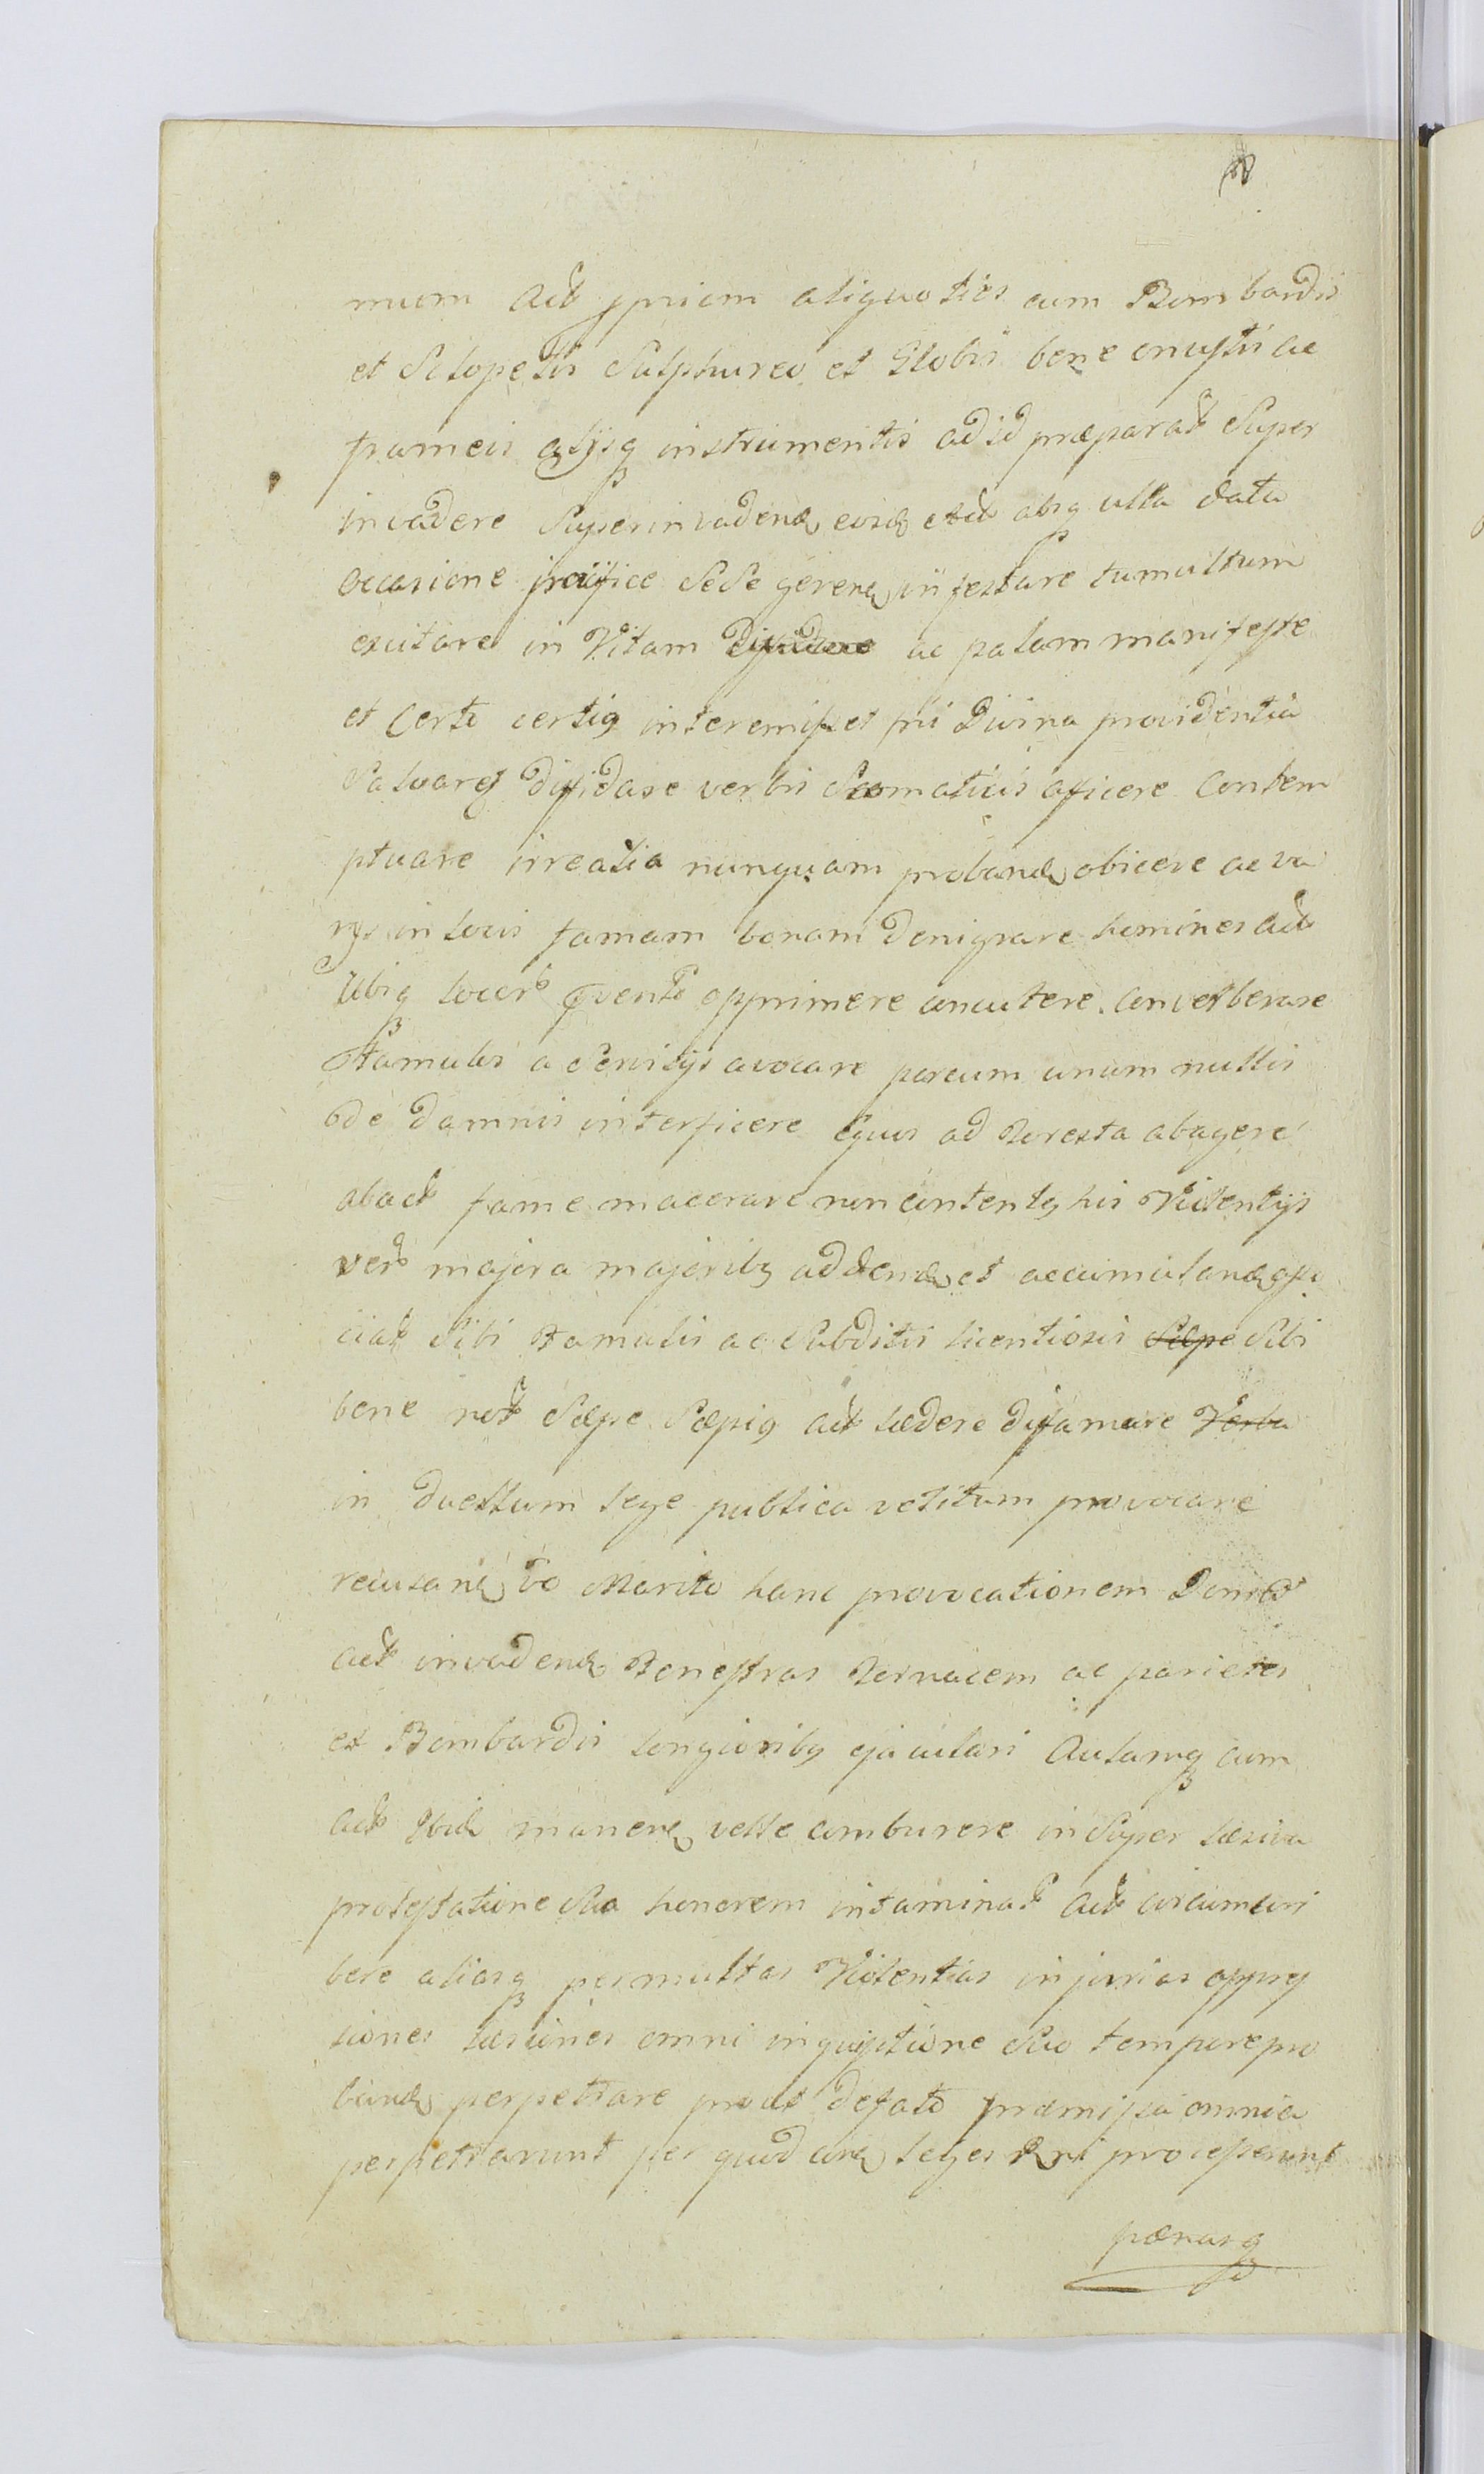 mum Act ppriam aliquoties cum Bombardis
et Sclopetis Sulphureo et Globis bene onustis ac
frameis alijsq instrumentis ad id præparat Super
invadere Superinvadend eosd Act absq ulla data
occasione pacifice Sese geren infestare tumultum
excitare in Vitam ac palam manifeste
et Certo certig interemisset ni Divina providentia
Salvaret diffidare verbis Scomaticis aficere Contem
ptuare irrealia nunquam proband obicere ac va
rys in locis famam bonam denigrare homines Act
Ubiq locor pvento opprimere concutere Converberare
Famulos a Servitijs avocare porcum unum nullis
de damnis interficere Equos ad Foresta abagere
abact fame macerare non contentg his Violentijs
vero majora majoribg addend et accumuland
ciat Sibi Famulis ac Subditis licentiosis Sæpe Sibi
bene not Sæpe Sæpig act lædere difamare Verba
in duellum lege publica vetitum provocare
recusan vo Marito hanc provocationem Domu
act invadend Fenestras Fornacem ac parietes
ex Bombardis longioribg ejaculari Aulamq cum
Act Ibid manen velle comburere inSuper læsiva
protestatione Sua honorem intaminat Act circumscri
bere aliasq permultas Violentias injurias oppres
siones læsiones omni inquisitione Suo tempore pro
band perpetrare prout de fato præmissa omnia
perpetrarunt per quod con leges Rni processerunt
pænasq